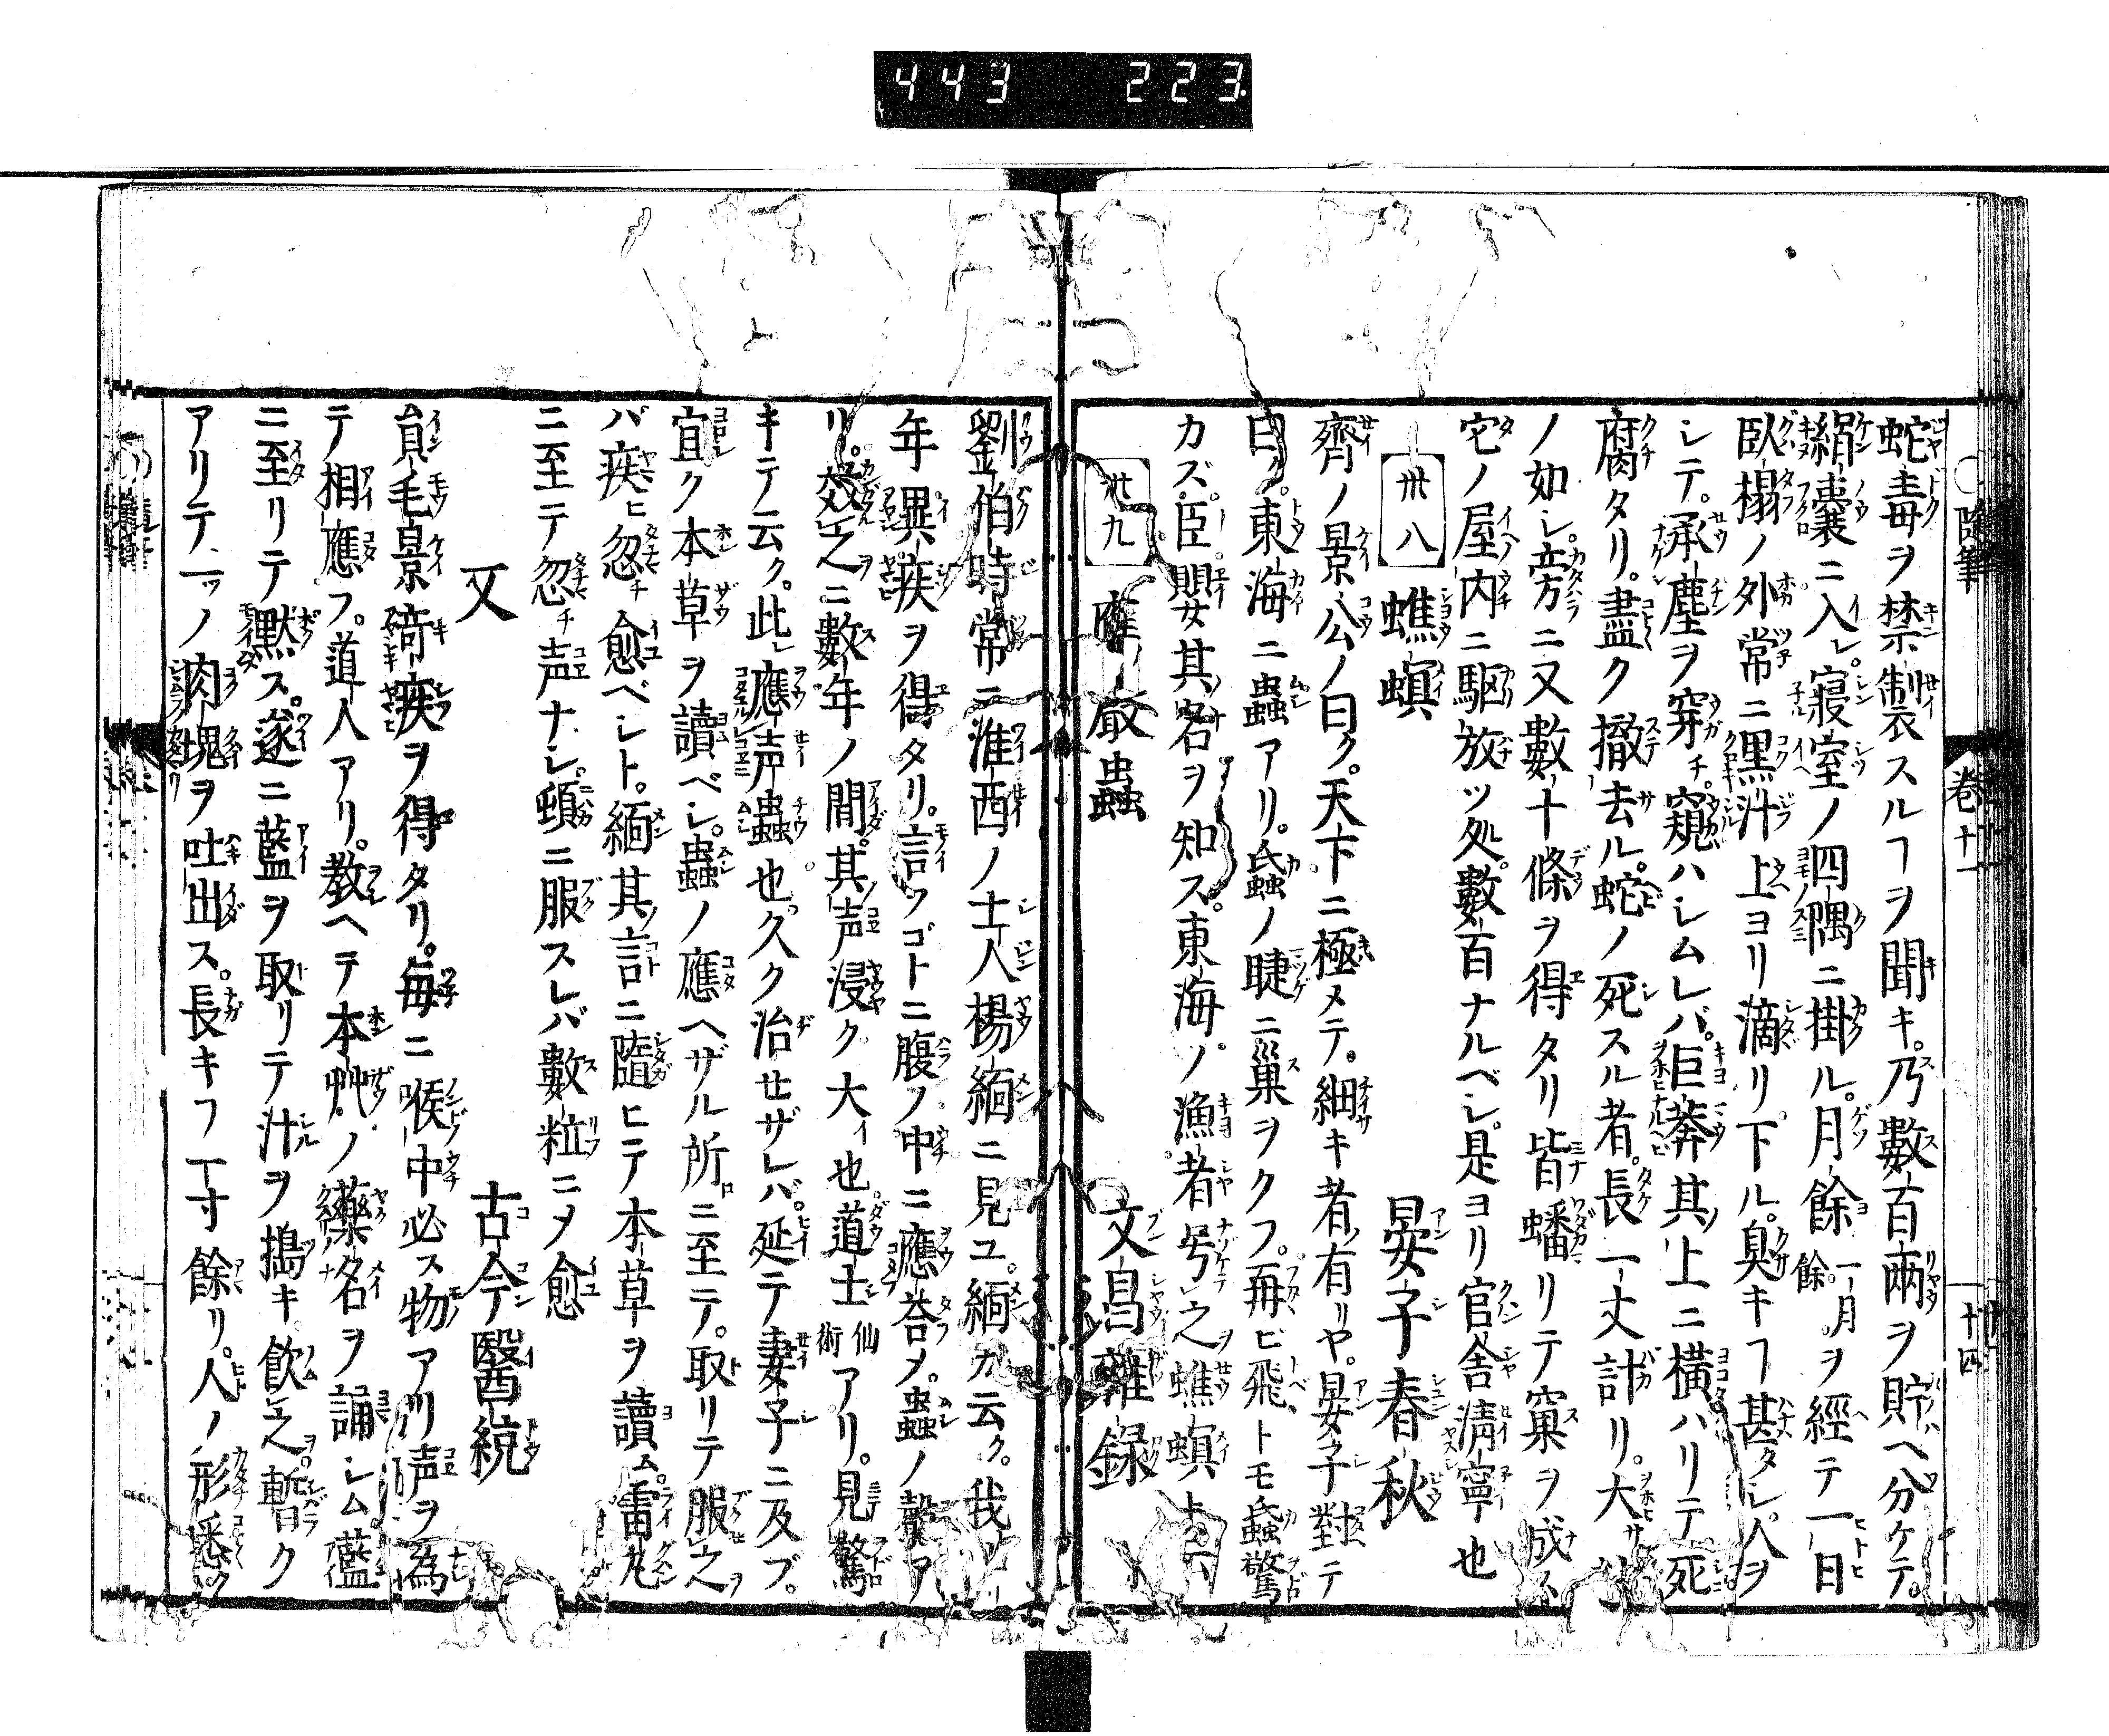 443 223
隨筆 卷十一 十四
蛇毒ヲ禁制スルヿヲ聞キ。乃數百兩ヲ貯ヘ分ケテ。
絹囊ニ入レ。寢室ノ四隅ニ掛ル。月餘一月餘ヲ經テ一日
臥榻ノ外常ニ黑汁上ヨリ滴リ下ル。臭キヿ甚タシ人ヲ
シテ。承塵ヲ穿チ。窺ハシムレバ。巨蟒其上ニ橫ハリテ死
腐タリ。盡ク撤去ル。蛇ノ死スル者。長一丈計リ。大サ
ノ如シ。旁ニ又數十條ヲ得タリ皆蟠リテ窠ヲ成ス
宅ノ屋内ニ駆放ツ処。數百ナルベシ。是ヨリ官舍淸寧也
卅八 蟭螟 晏子春秋
齊ノ景公ノ曰ク。天下ニ極メテ。細キ者有リヤ。晏子對テ
曰ク。東海ニ蟲アリ。蟁ノ睫ニ巢ヲクフ。再ビ飛トモ蟁驚
カズ。臣嬰其名ヲ知ス。東海ノ漁者号之蟭螟ト云
卅九 應声蟲 文昌雜録
劉伯時常ニ淮西ノ士人楊緬ニ見ユ。緬カ云ク。我
年異疾ヲ得タリ。言フゴトニ腹ノ中ニ應荅メ。蟲ノ聲ア
リ。效之ニ數年ノ間。其声浸ク大イ也。道士仙術アリ。見驚
キテ云ク。此應声蟲也。久ク治セザレバ。延テ妻子ニ及ブ。
宜ク本草ヲ讀ベシ。蟲ノ應ヘザル所ニ至テ。取リテ服之
バ疾ヒ忽チ愈ベシト。緬其言ニ隨ヒテ本草ヲ讀ム。雷丸
ニ至テ忽チ声ナシ。頓ニ服スレバ數粒ニメ愈
又 古今醫統
貟毛景竒疾ヲ得タリ。毎ニ喉中必ス物アリ声ヲ為
テ相應フ。道人アリ。教ヘテ本艸ノ藥名ヲ誦シム藍
ニ至リテ默ス。遂ニ藍ヲ取リテ汁ヲ搗キ飲之。暫ク
アリテ一ツノ肉塊ヲ吐出ス。長キヿ一寸餘リ。人ノ形悉ク